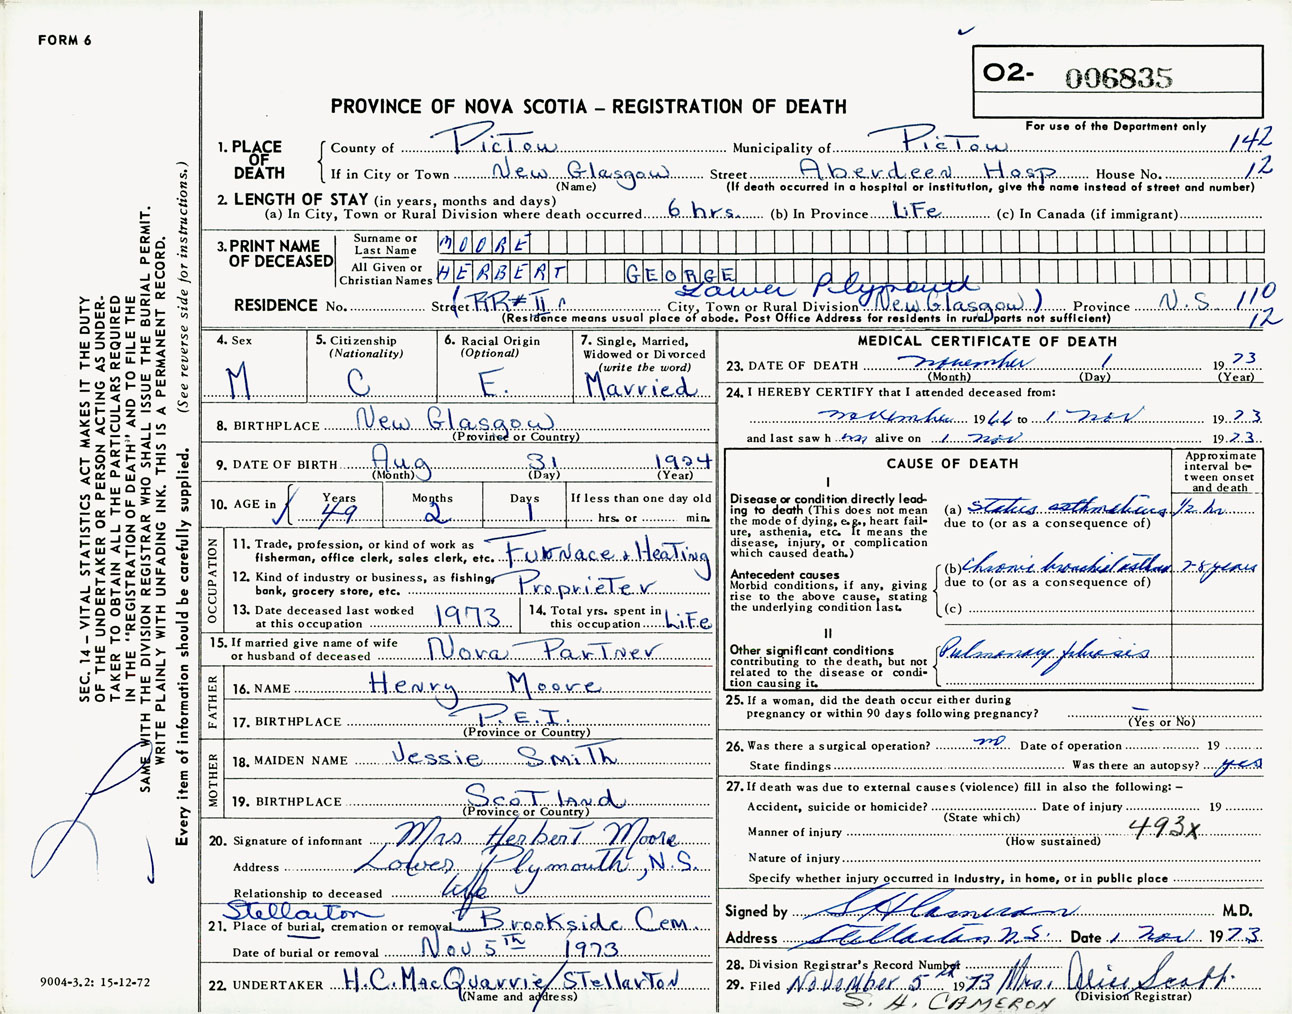 FORM 6
O2- 006835
PROVINCE OF NOVA SCOTIA – REGISTRATION OF DEATH
For use of the Department only
1. PLACE OF DEATH
County of Pictou Municipality of Pictou 142
If in City or Town New Glasgow Street Aberdeen Hosp House No. 12
(Name) (If death occurred in a hospital or institution, give the name instead of street and number)
2. LENGTH OF STAY (in years, months and days)
(a) In City, Town or Rural Division where death occurred 6 hrs. (b) In Province Life (c) In Canada (if immigrant)
3. PRINT NAME OF DECEASED
Surname or Last Name MOORE
All Given or Christian Names HERBERT GEORGE
Lower Plymouth
RESIDENCE No. Street (RR# II City, Town or Rural Division New Glasgow) Province N.S. 110
(Residence means usual place of abode. Post Office Address for residents in rural parts not sufficient) 12
4. Sex
M
5. Citizenship
(Nationality)
C
6. Racial Origin
(Optional)
E.
7. Single, Married,
Widowed or Divorced
(write the word)
Married
8. BIRTHPLACE New Glasgow
(Province or Country)
9. DATE OF BIRTH Aug 31 1924
(Month) (Day) (Year)
10. AGE in Years Months Days If less than one day old
49 2 1 hrs. or min.
OCCUPATION
11. Trade, profession, or kind of work as
fisherman, office clerk, sales clerk, etc. Furnace & Heating
12. Kind of industry or business, as fishing,
bank, grocery store, etc. Proprieter
13. Date deceased last worked
at this occupation 1973
14. Total yrs. spent in
this occupation Life
15. If married give name of wife
or husband of deceased Nova Partner
FATHER
16. NAME Henry Moore
17. BIRTHPLACE P.E.I.
(Province or Country)
MOTHER
18. MAIDEN NAME Jessie Smith
19. BIRTHPLACE Scotland
(Province or Country)
20. Signature of informant Mrs Herbert Moore
Address Lower Plymouth, N.S.
Relationship to deceased wife
Stellarton
21. Place of burial, cremation or removal Brookside Cem.
Date of burial or removal Nov 5th 1973
22. UNDERTAKER H.C. MacQuarrie/Stellarton
(Name and address)
MEDICAL CERTIFICATE OF DEATH
23. DATE OF DEATH november 1 1973
(Month) (Day) (Year)
24. I HEREBY CERTIFY that I attended deceased from:
november 1966 to 1 nov 1973
and last saw h im alive on 1 nov 1973
CAUSE OF DEATH
Approximate
interval be-
tween onset
and death
I
Disease or condition directly lead-
ing to death (This does not mean
the mode of dying, e.g., heart fail-
ure, asthenia, etc. It means the
disease, injury, or complication
which caused death.)
(a) status asthmaticus ½ hr
due to (or as a consequence of)
Antecedent causes
Morbid conditions, if any, giving
rise to the above cause, stating
the underlying condition last.
(b) chronic bronchial asthma 7-8 years
due to (or as a consequence of)
(c)
II
Other significant conditions
contributing to the death, but not
related to the disease or condi-
tion causing it.
Pulmonary fibrosis
25. If a woman, did the death occur either during
pregnancy or within 90 days following pregnancy? –
(Yes or No)
26. Was there a surgical operation? no Date of operation 19
State findings Was there an autopsy? yes
27. If death was due to external causes (violence) fill in also the following: –
Accident, suicide or homicide? Date of injury 19
(State which)
Manner of injury 493X
(How sustained)
Nature of injury
Specify whether injury occurred in industry, in home, or in public place
Signed by S H Cameron M.D.
Address Stellarton N.S. Date 1 Nov 1973
28. Division Registrar's Record Number
29. Filed November 5th 1973 Mrs. Alice Scott
S. H. CAMERON (Division Registrar)
SEC. 14 – VITAL STATISTICS ACT MAKES IT THE DUTY
OF THE UNDERTAKER OR PERSON ACTING AS UNDER-
TAKER TO OBTAIN ALL THE PARTICULARS REQUIRED
IN THE "REGISTRATION OF DEATH" AND TO FILE THE
SAME WITH THE DIVISION REGISTRAR WHO SHALL ISSUE THE BURIAL PERMIT.
WRITE PLAINLY WITH UNFADING INK. THIS IS A PERMANENT RECORD.
Every item of information should be carefully supplied. (See reverse side for instructions.)
9004-3.2: 15-12-72